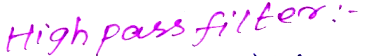 High pass filter:-